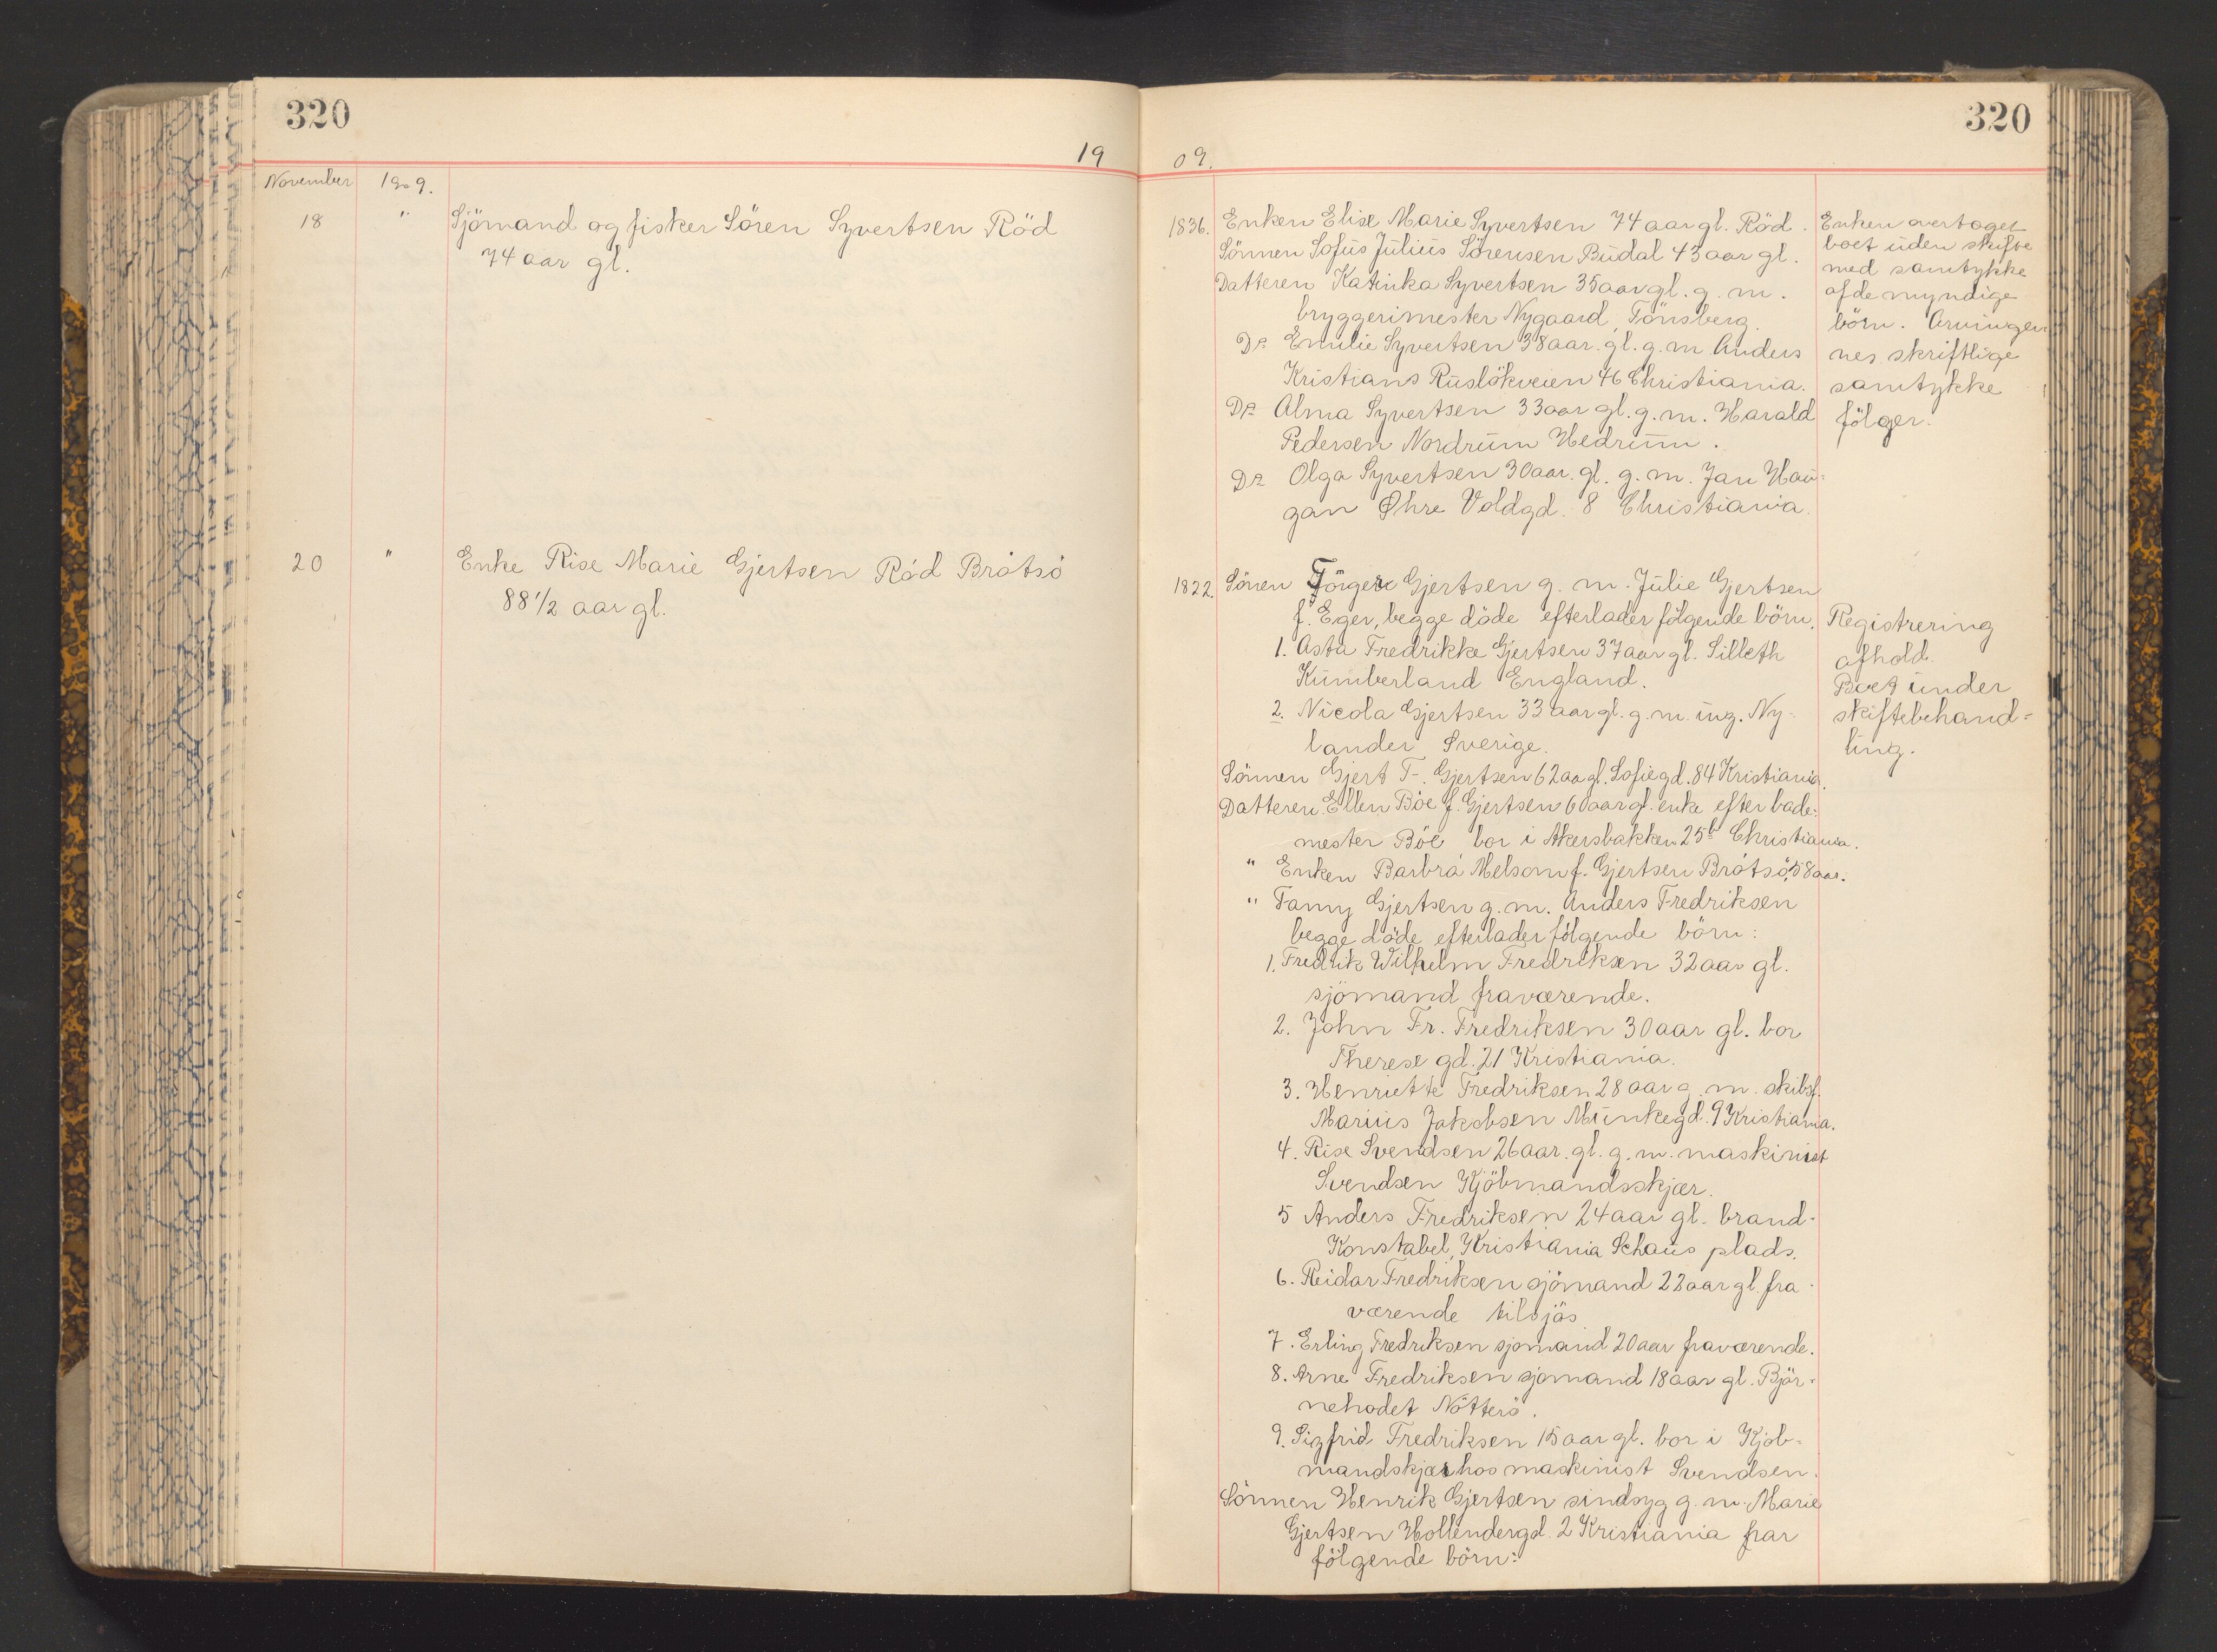 320
19
November 1909.
18 " Sjömand og fisker Sören Syvertsen Röd
74 aar gl.
20 " Enke Rise Marie Gjertsen Röd Bråtsö
88 1/2 aar gl.
320
09.
1836. Enken Elise Marie Syvertsen 74 aar gl. Röd.
Sönnen Sofus Julius Sörensen Budal 43 aar gl.
Datteren Katinka Syvertsen 35 aar gl. g. m.
bryggerimester Nygaard, Tönsberg.
Do Emilie Syvertsen 38 aar. gl. g. m Anders
Kristians Ruslökveien 46 Christiania.
Do Alma Syvertsen 33 aar gl. g. m. Harald
Pedersen Nordrum Hedrum.
Do Olga Syvertsen 30 aar. gl. g. m. Jan Hau-
gan Øhre Voldgd. 8 Christiania.
Enken overtager
boet uden skifte
med samtykke
af de myndige
börn. Arvingen
nes skriftlige
samtykke
fölger.
1822. Sönen Jörgen Gjertsen g. m. Julie Gjertsen
f. Eger, begge döde efterlader fölgende börn.
1. Asta Fredrikke Gjertsen 37 aar gl. Silleth
Kumberland England.
2. Nicola Gjertsen 33 aar gl. g. m. ing. Ny-
lander Sverige.
Sönnen Gjert T. Gjertsen 62 aa gl. Sofiegd. 84 Kristiania.
Datteren Ellen Böe f. Gjertsen 60 aar gl. enke efter bade-
mester Böe bor i Akersbakken 25b Christiania.
" Enken Barbra Melsom f. Gjertsen Bråtsö, 58 aar.
" Fanny Gjertsen g. m. Anders Fredriksen
begge döde efterlader fölgende börn:
1. Fredrik Wilhelm Fredriksen 32 aar gl.
sjömand fraværende.
2. John Fr. Fredriksen 30 aar gl. bor
Therese gd. 21 Kristiania.
3. Henriette Fredriksen 28 aar g. m. skibsf.
Marius Jakobsen Munkegd. 9 Kristiania.
4. Rise Svendsen 26 aar. gl. g. m. maskinist
Svendsen Kjöbmandsskjær.
5 Anders Fredriksen 24 aar gl. brand-
Konstabel, Kristiania Schaus plads.
6. Reidar Fredriksen sjömand 22 aar gl. fra-
værende tilsjös
7. Erling Fredriksen sjömand 20 aar fraværende.
8. Arne Fredriksen sjömand 18 aar gl. Björ-
nehodet Nötterö.
9. Sigfrid Fredriksen 15 aar gl. bor i Kjöb-
mandskjær hos maskinist Svendsen.
Sönnen Henrik Gjertsen sindsyg g. m. Marie
Gjertsen Hollendergd. 2 Kristiania har
fölgende börn:
Registrering
afhold.
Boet under
skiftebehand-
ling.